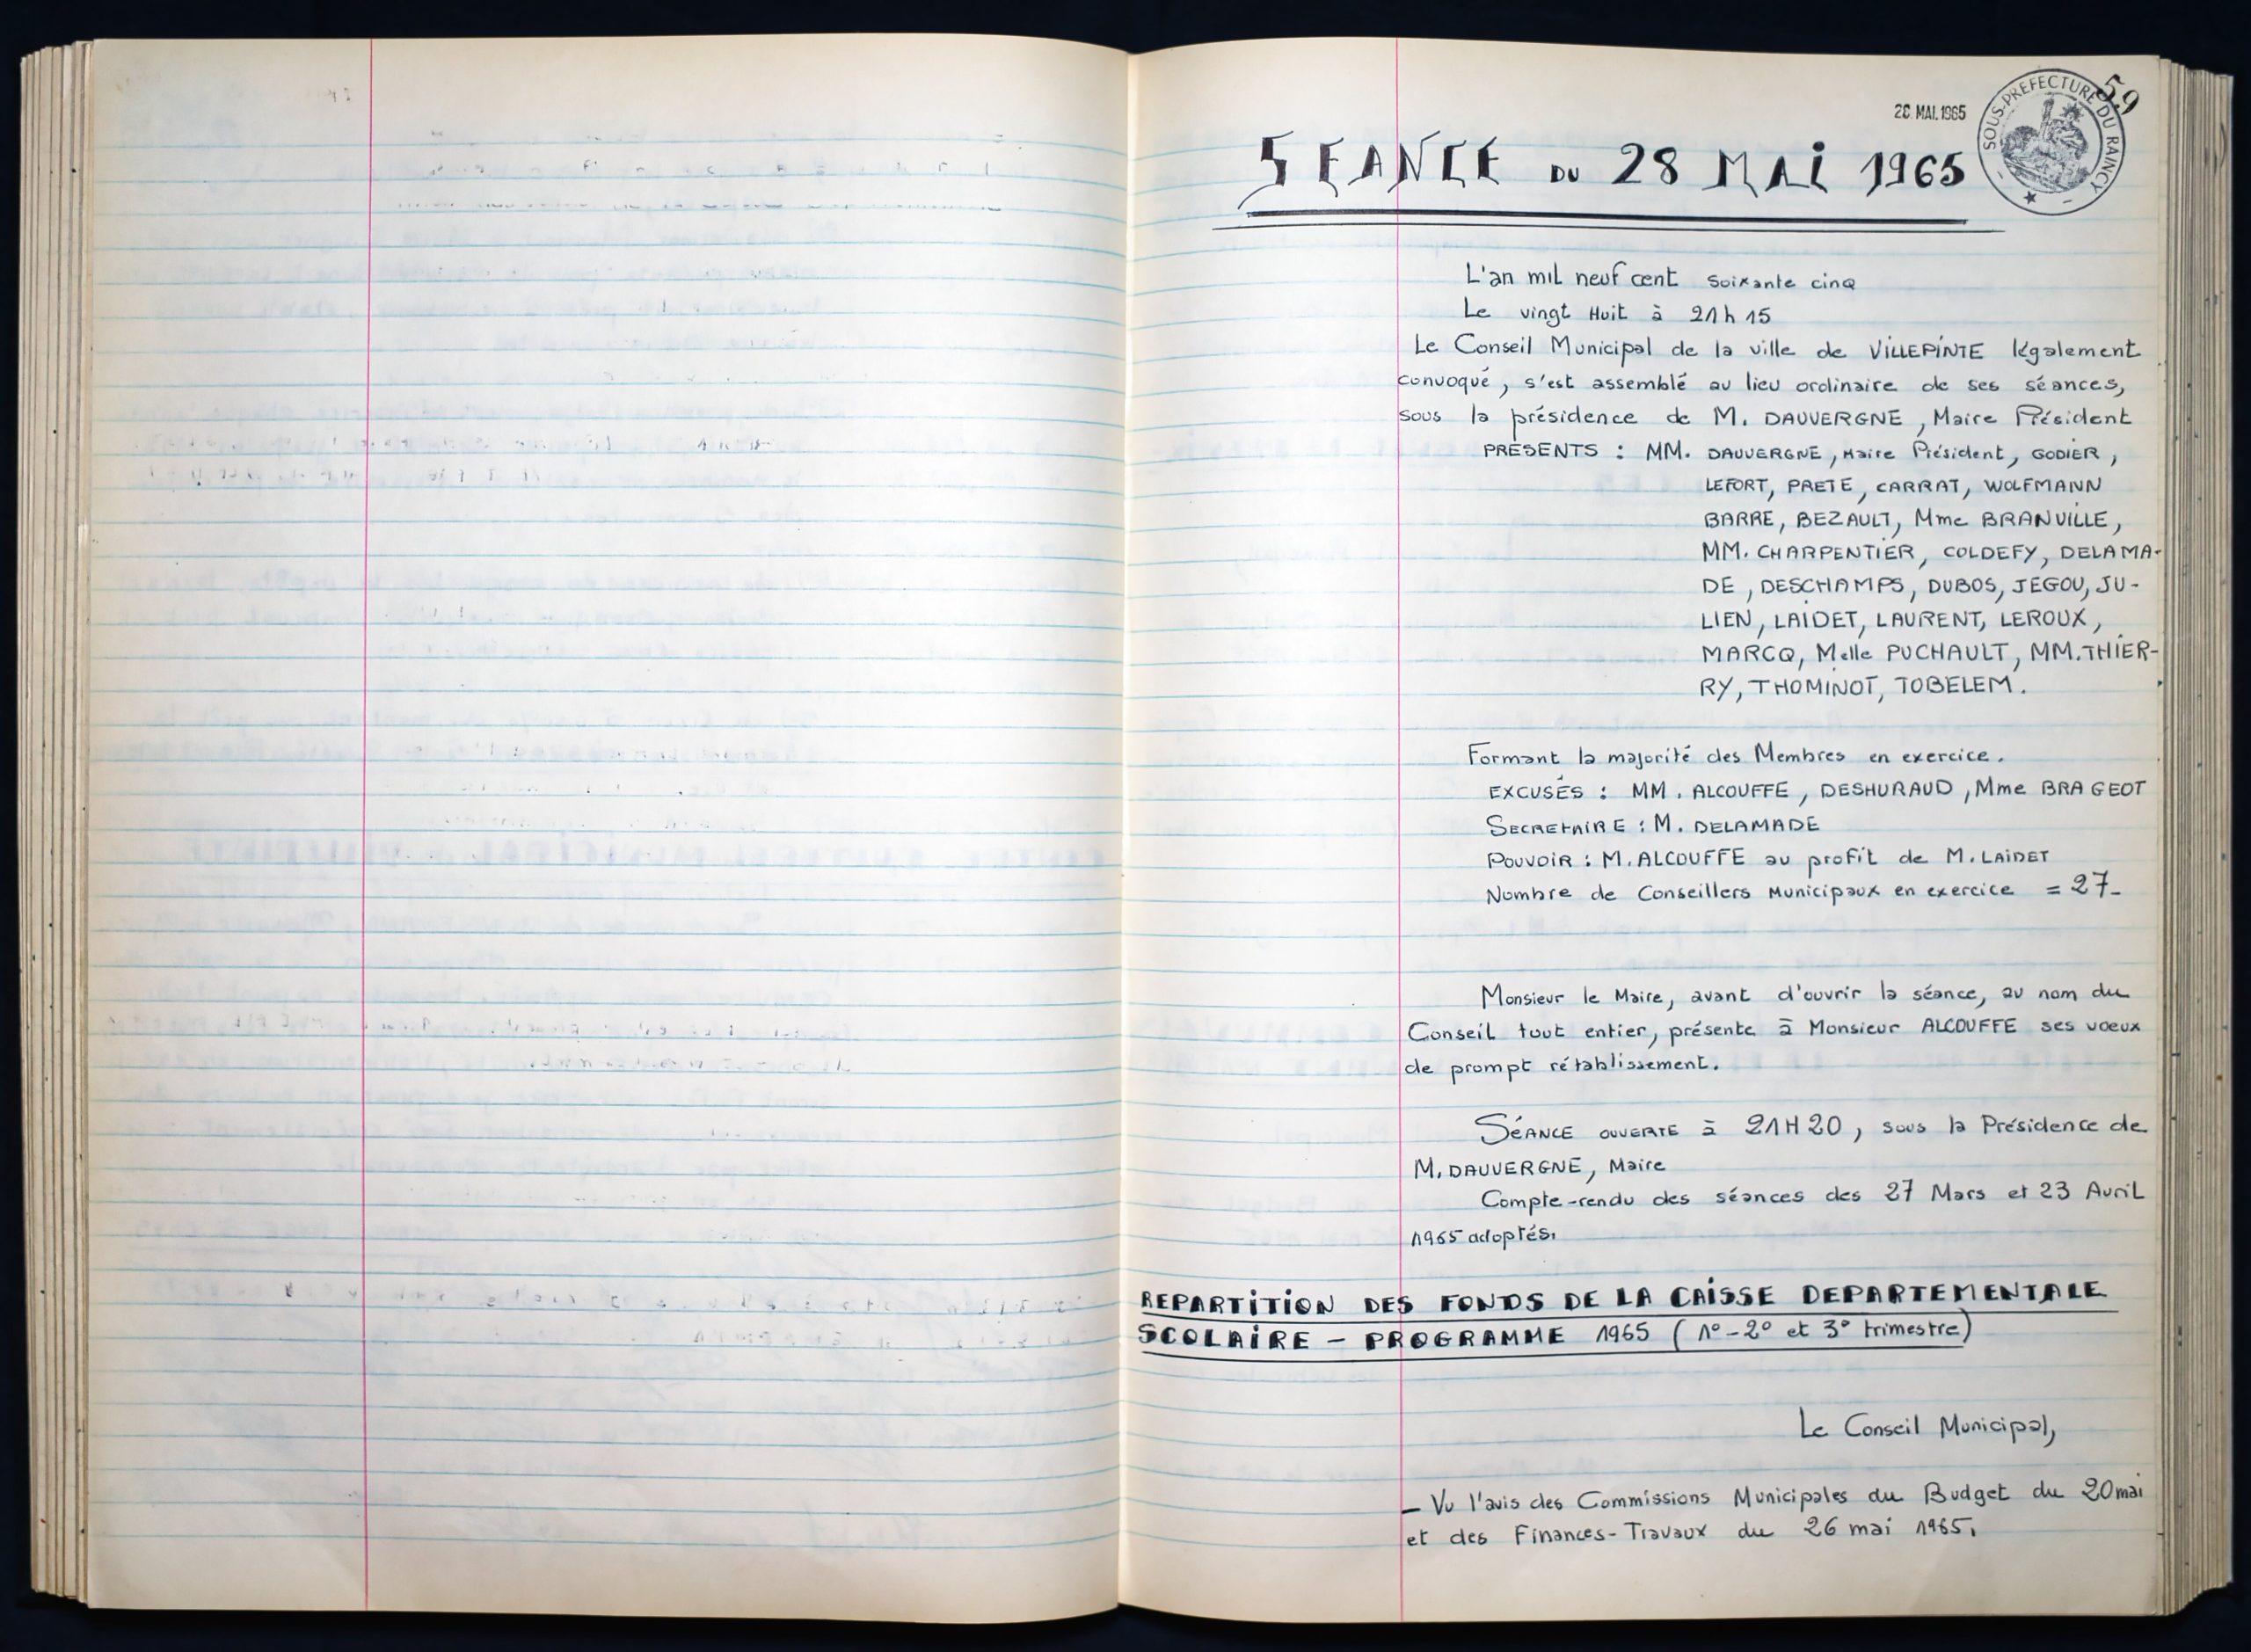 59
28. MAI. 1965
SOUS-PREFECTURE DU RAINCY
SEANCE DU 28 MAI 1965
L'an mil neuf cent soixante cinq
Le vingt Huit à 21h15
Le Conseil Municipal de la ville de VILLEPINTE légalement
convoqué, s'est assemblé au lieu ordinaire de ses séances,
sous la présidence de M. DAUVERGNE, Maire Président
PRÉSENTS : MM. DAUVERGNE, Maire Président, GODIER,
LEFORT, PRETE, CARRAT, WOLFMANN
BARRE, BEZAULT, Mme BRANVILLE,
MM. CHARPENTIER, COLDEFY, DELAMA-
DE, DESCHAMPS, DUBOS, JEGOU, JU-
LIEN, LAIDET, LAURENT, LEROUX,
MARCQ, Melle PUCHAULT, MM. THIER-
RY, THOMINOT, TOBELEM.
Formant la majorité des Membres en exercice.
EXCUSÉS : MM. ALCOUFFE, DESHURAUD, Mme BRAGEOT
SECRETAIRE : M. DELAMADE
Pouvoir : M. ALCOUFFE au profit de M. LAIDET
Nombre de Conseillers Municipaux en exercice = 27_
Monsieur le Maire, avant d'ouvrir la séance, au nom du
Conseil tout entier, présente à Monsieur ALCOUFFE ses voeux
de prompt rétablissement.
SÉANCE OUVERTE à 21H20, sous la Présidence de
M. DAUVERGNE, Maire
Compte-rendu des séances des 27 Mars et 23 Avril
1965 adoptés.
REPARTITION DES FONDS DE LA CAISSE DEPARTEMENTALE
SCOLAIRE - PROGRAMME 1965 (1° - 2° et 3° trimestre)
Le Conseil Municipal,
_ Vu l'avis des Commissions Municipales du Budget du 20 mai
et des Finances-Travaux du 26 mai 1965.